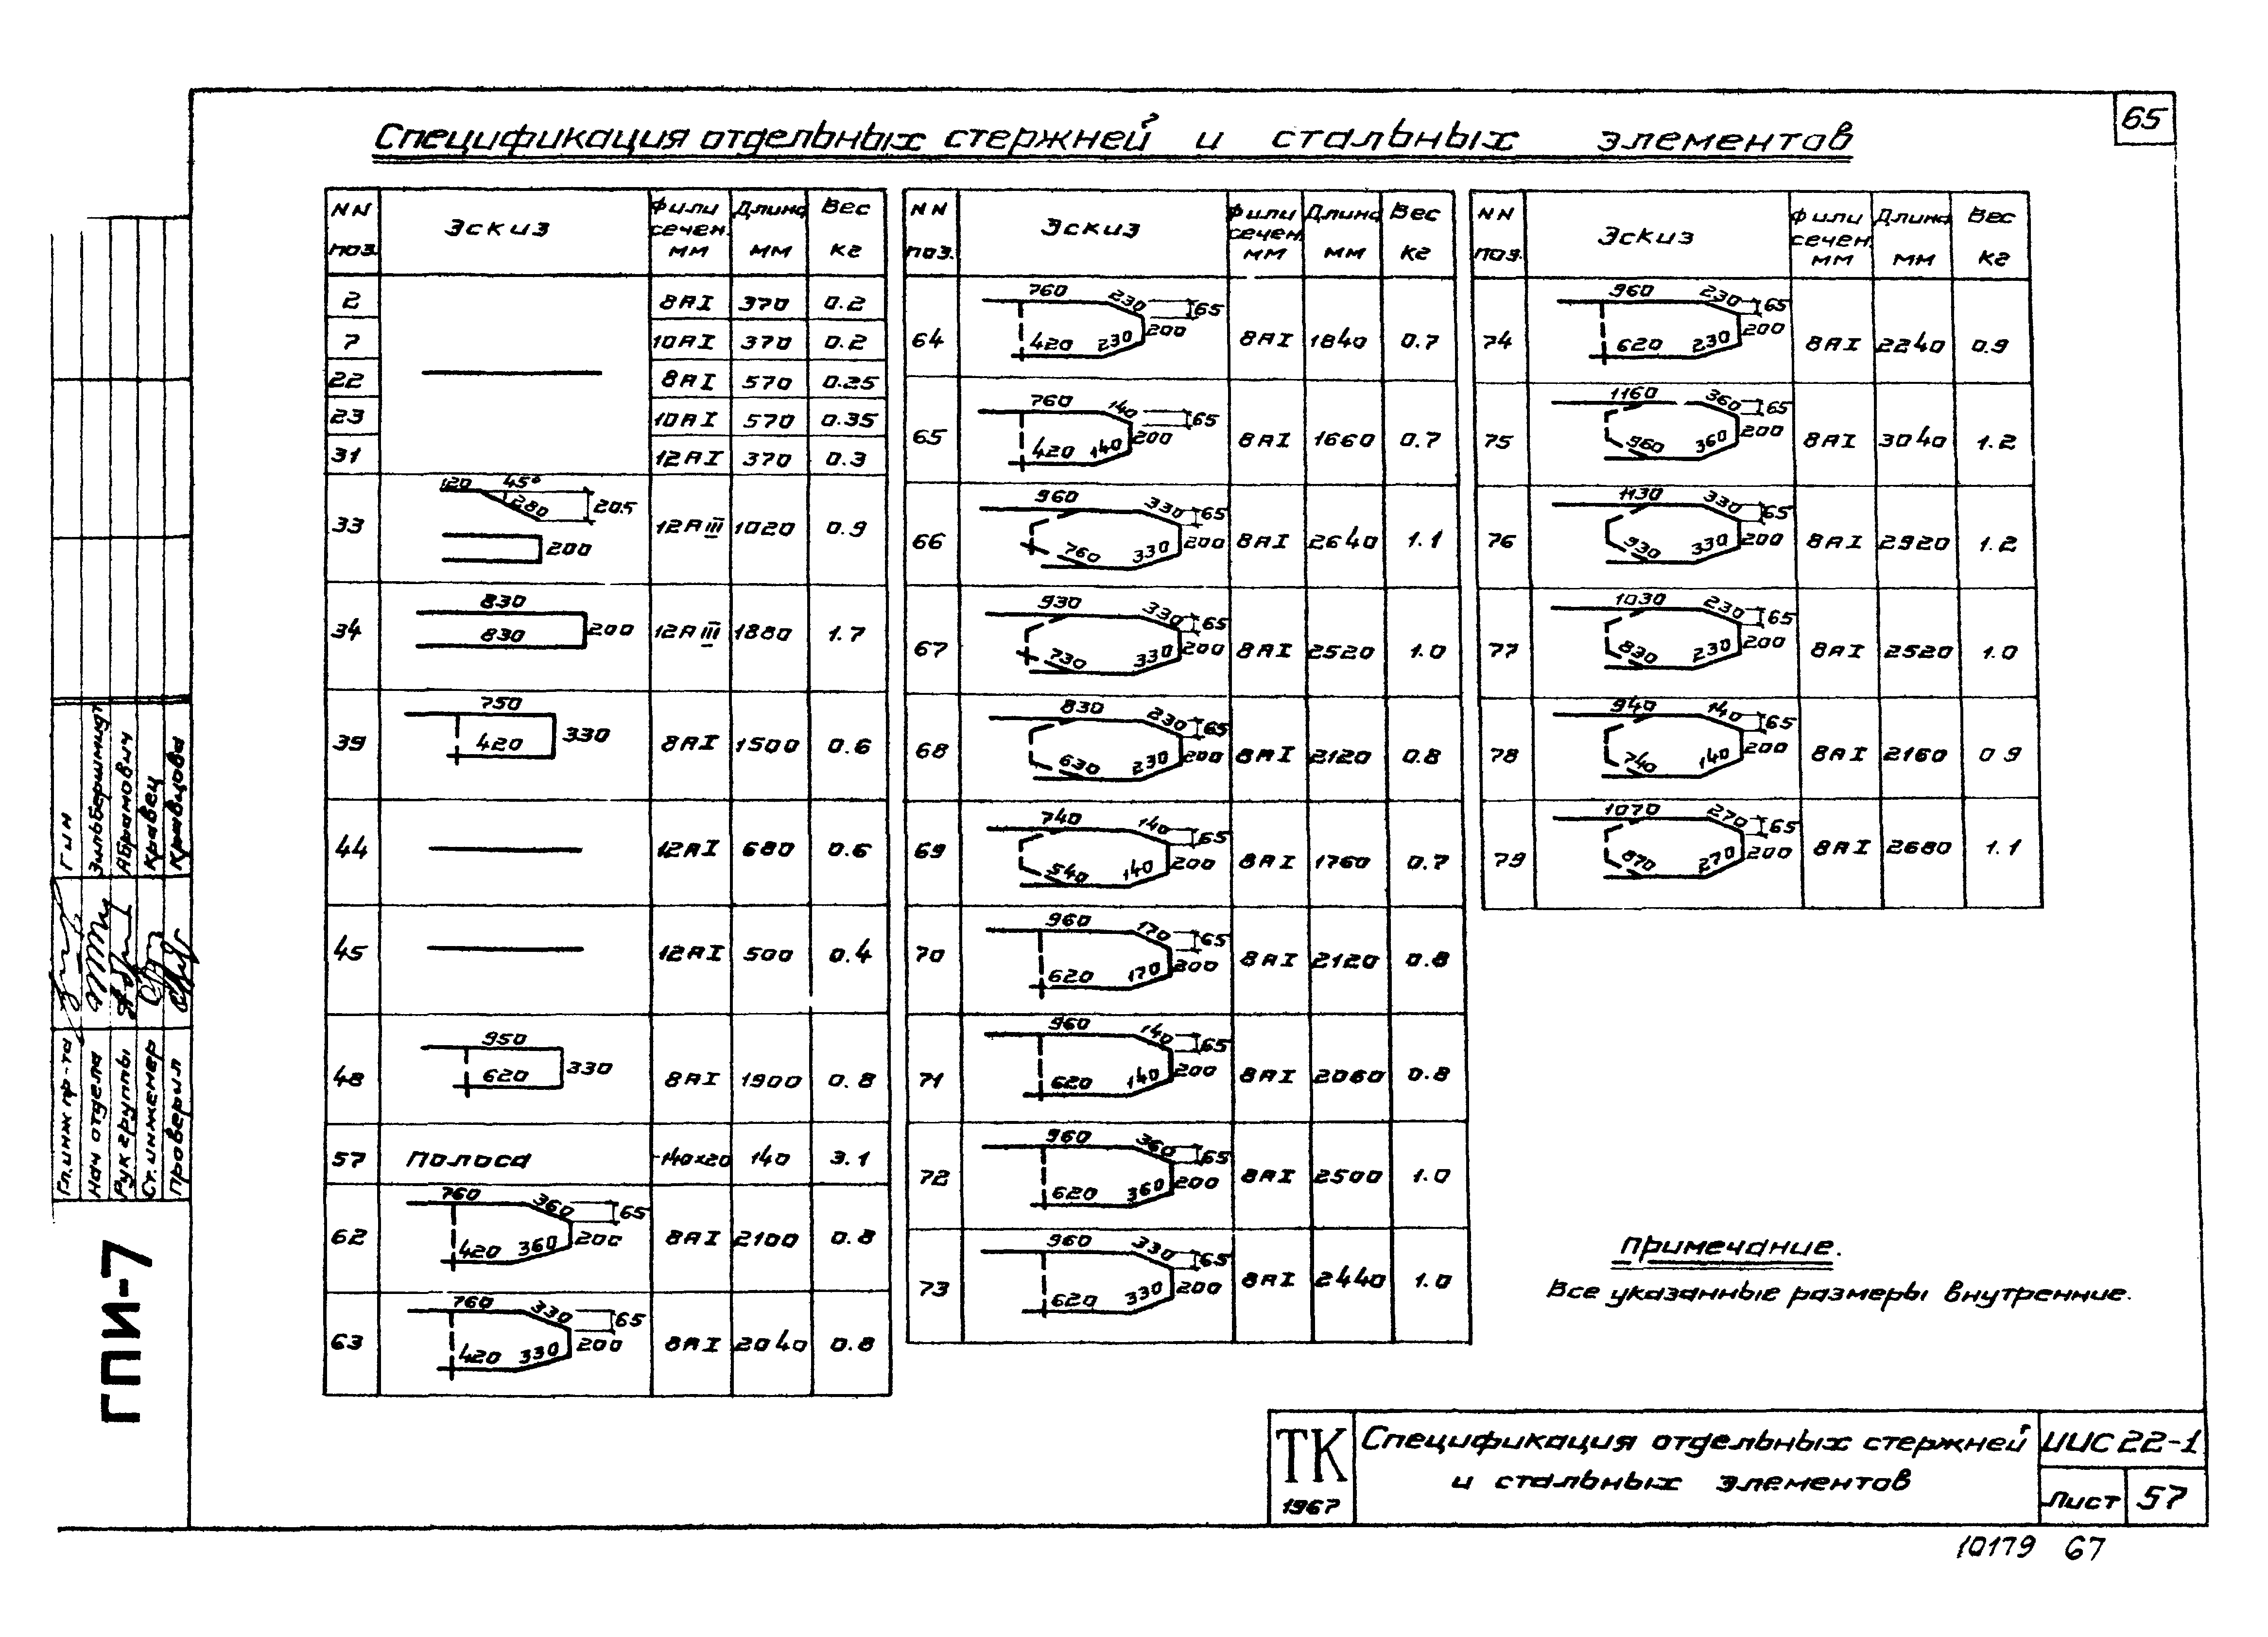 65
Спецификация отдельных стержней и стальных элементов
NN поз. Эскиз ф или сечен. мм Длина мм Вес кг
2 8АI 370 0.2
7 10АI 370 0.2
22 8АI 570 0.25
23 10АI 570 0.35
31 12АI 370 0.3
33 120 45° 280 205 200 12АIII 1020 0.9
34 830 830 200 12АIII 1880 1.7
39 750 420 330 8АI 1500 0.6
44 12АI 680 0.6
45 12АI 500 0.4
48 950 620 330 8АI 1900 0.8
57 Полоса -140×20 140 3.1
62 760 360 65 420 360 200 8АI 2100 0.8
63 760 330 65 420 330 200 8АI 2040 0.8
NN поз. Эскиз ф или сечен. мм Длина мм Вес кг
64 760 230 65 420 230 200 8АI 1840 0.7
65 760 140 65 420 140 200 8АI 1660 0.7
66 960 330 65 760 330 200 8АI 2640 1.1
67 930 330 65 730 330 200 8АI 2520 1.0
68 830 230 65 630 230 200 8АI 2120 0.8
69 740 140 65 540 140 200 8АI 1760 0.7
70 960 170 65 620 170 200 8АI 2120 0.8
71 960 140 65 620 140 200 8АI 2060 0.8
72 960 360 65 620 360 200 8АI 2500 1.0
73 960 330 65 620 330 200 8АI 2440 1.0
NN поз. Эскиз ф или сечен. мм Длина мм Вес кг
74 960 230 65 620 230 200 8АI 2240 0.9
75 1160 360 65 960 360 200 8АI 3040 1.2
76 1130 330 65 930 330 200 8АI 2920 1.2
77 1030 230 65 830 230 200 8АI 2520 1.0
78 940 140 65 740 140 200 8АI 2160 0 9
79 1070 270 65 870 270 200 8АI 2680 1.1
Примечание.
Все указанные размеры внутренние.
Гл.инж пр-та ГИН
Нач отдела Зильбершмидт
Рук группы Абрамович
Ст.инженер Кравец
Проверил Кравцова
ГПИ-7
ТК
1967
Спецификация отдельных стержней
и стальных элементов
ИИС 22-1
Лист 57
10179 67